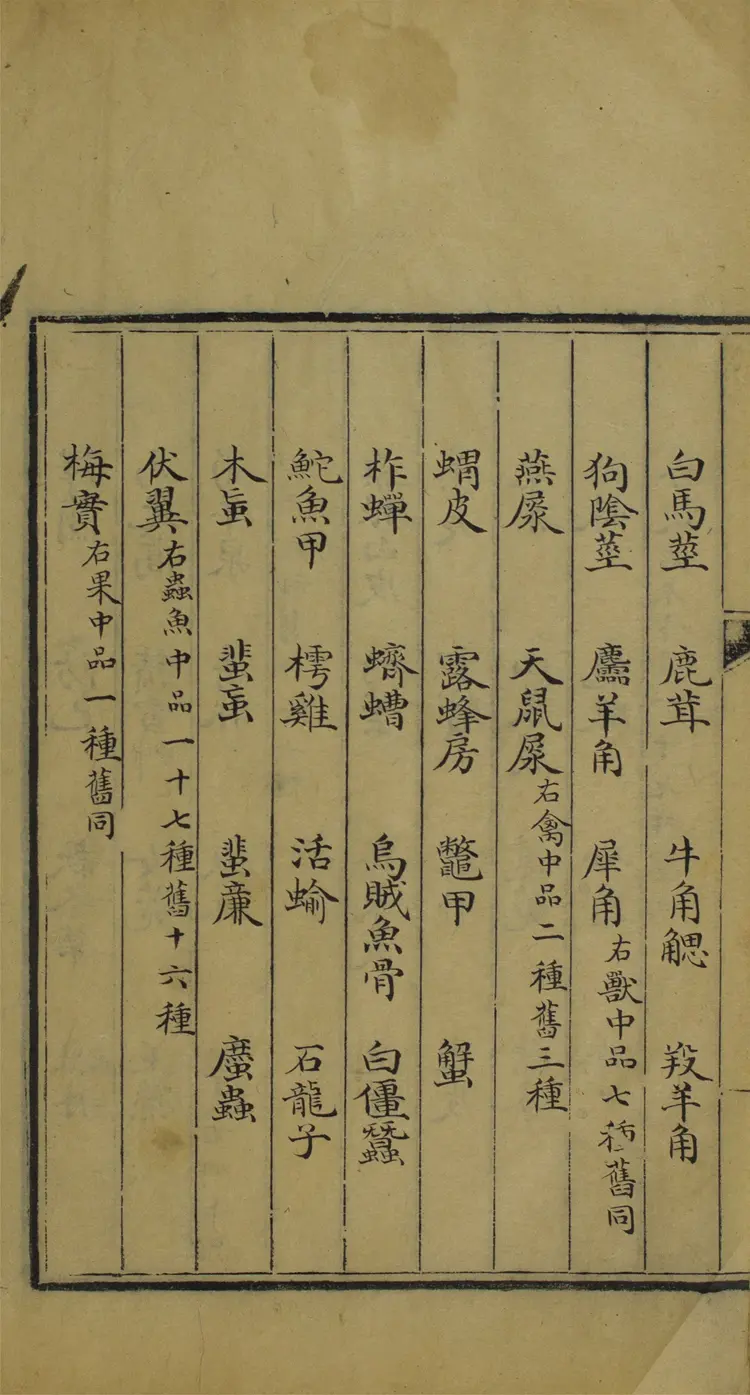 白馬莖 鹿茸 牛角䚡 羖羊角
狗陰莖 麢羊角 犀角 右獸中品七種舊同
燕屎 天鼠屎 右禽中品二種舊三種
蝟皮 露蜂房 鼈甲 蟹
柞蟬 蠐螬 烏賊魚骨 白僵蠶
鮀魚甲 樗雞 活蝓 石龍子
木䖟 蜚䖟 蜚廉 䗪蟲
伏翼 右蟲魚中品一十七種舊十六種
梅實 右果中品一種舊同